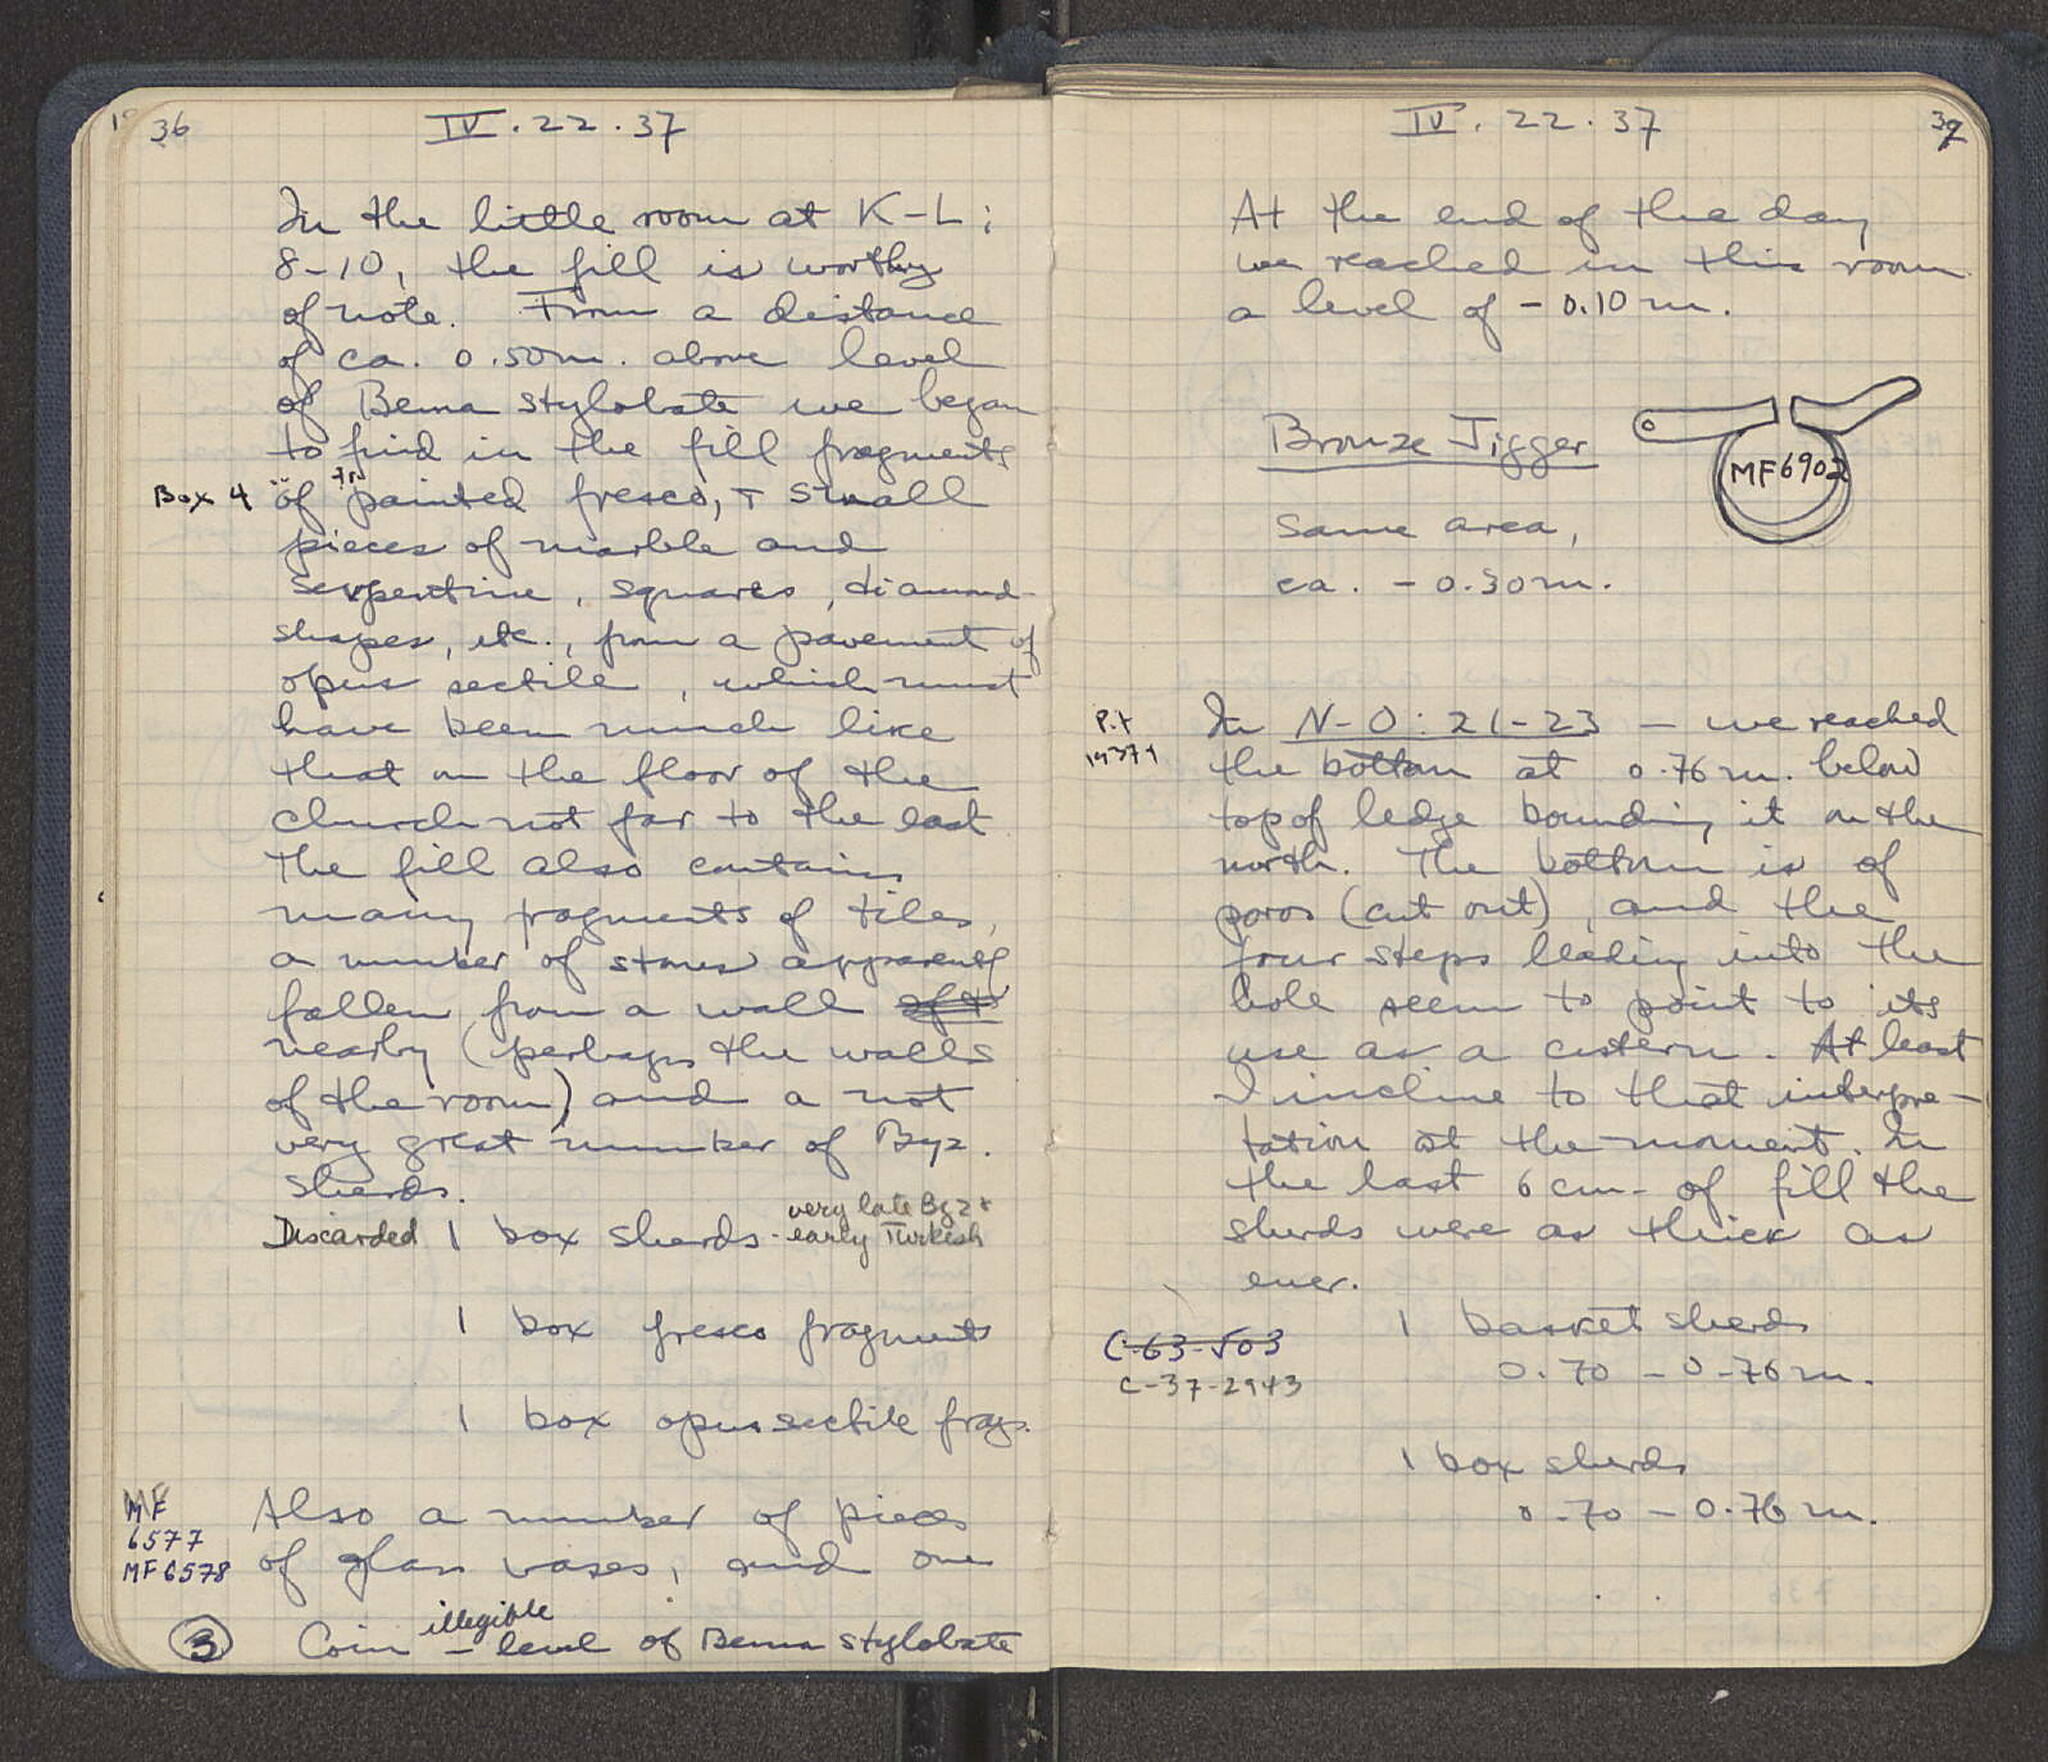 36
IV. 22. 37
In the little room at K-L:
8-10, the fill is worthy
of note. From a distance
of ca. 0.50m. above level
of Bema stylobate we began
to find in the fill fragments
Box 4 of painted fresco, + small
pieces of marble and
serpentine, squares, diamond-
shapes, etc., from a pavement of
opus sectile, which must
have been much like
that on the floor of the
church not far to the east
The fill also contains
many fragments of tiles,
a number of stones apparently
fallen from a wall
nearby (perhaps the walls
of the room) and a not
very great number of Byz.
sherds.
Discarded 1 box sherds - very late Byz +
early Turkish
1 box fresco fragments
1 box opus sectile frags.
MF
6577
MF6578
Also a number of pieces
of glass vases, and one
illegible
3 Coin - level of Bema stylobate
IV. 22. 37
37
At the end of the day
we reached in this room
a level of - 0.10 m.
Bronze Jigger
MF6902
same area,
ca. - 0.30m.
In N-O: 21-23 - we reached
the bottom at 0.76 m. below
top of ledge bounding it on the
north. The bottom is of
poros (cut out), and the
four steps leading into the
hole seem to point to its
use as a cistern. At least
I incline to that interpre-
tation at the moment. In
the last 6 cm. of fill the
sherds were as thick as
ever.
1 basket sherds
0.70 - 0.76 m.
C-63-503
C-37-2943
1 box sherds
0.70 - 0.76 m.